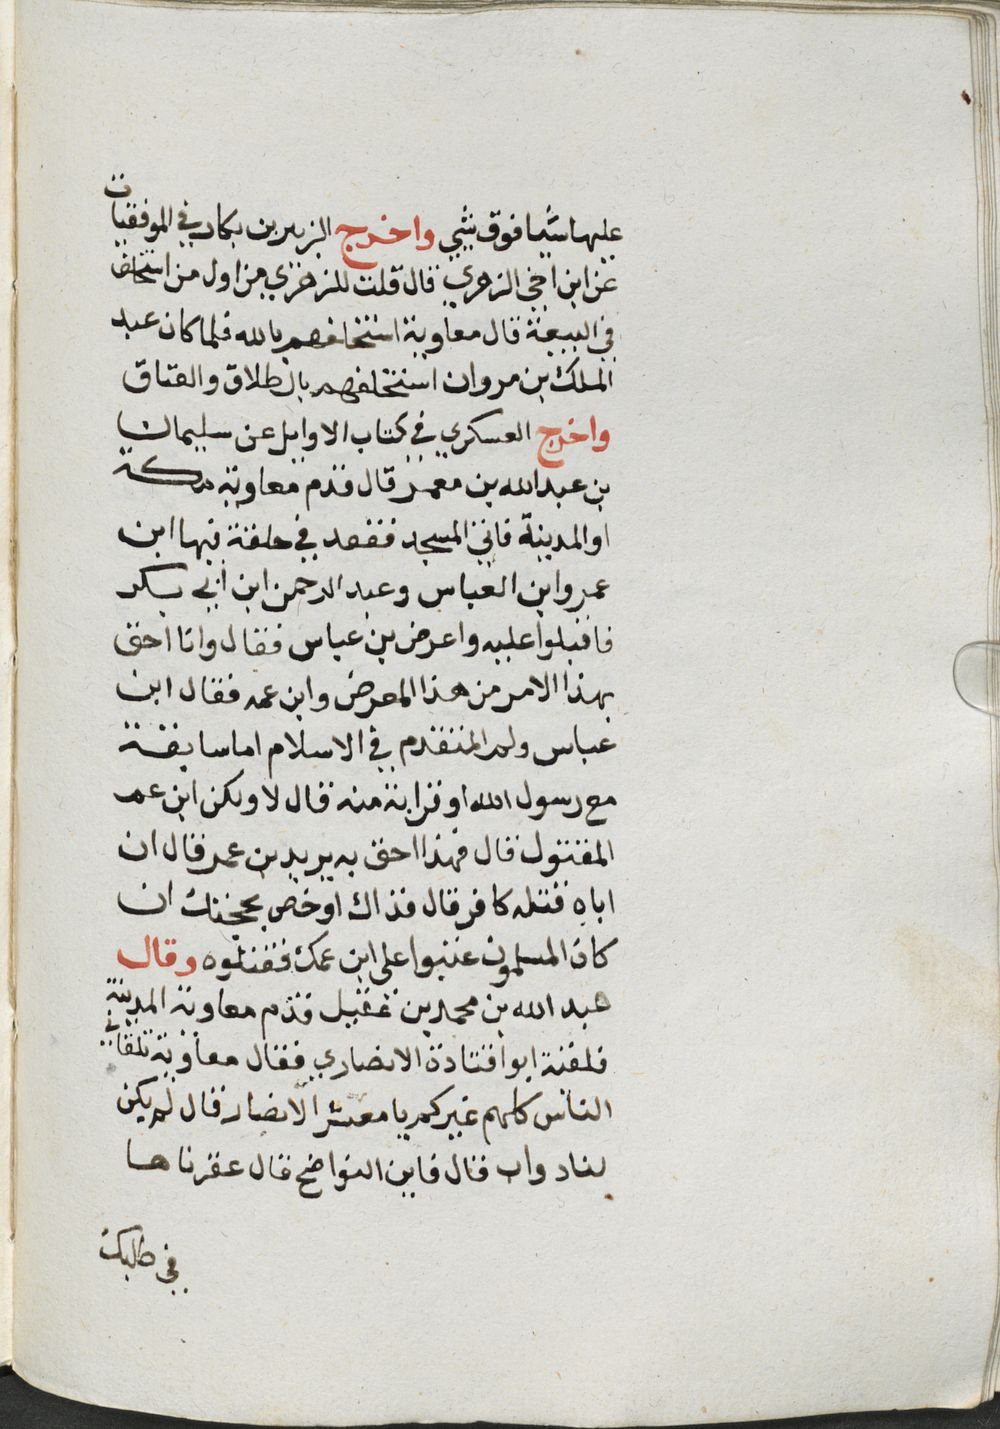 عليها شيا فوق شي واخرج الزبير بن بكار في الموفقيات
عن ابن اخي الزهري قال قلت للزهري من اول من استحلف
في البيعة قال معاوية استحلفهم بالله فلما كان عبد
الملك بن مروان استحلفهم بالطلاق والعتاق
واخرج العسكري في كتاب الاوايل عن سليمان
بن عبد الله بن معمر قال قدم معاوية مكة
او المدينة فاتي المسجد فقعد في حلقة فيها ابن
عمر وابن العباس وعبد الرحمن ابن ابي بكر
فاقبلوا عليه واعرض بن عباس فقال وانا احق
بهذا الامر من هذا المعرض وابن عمه فقال ابن
عباس ولم المتقدم في الاسلام اما سابقة
مع رسول الله او قرابة منه قال لا ولكن ابن عم
المقتول قال فهذا احق به يريد بن عمر قال ان
اباه قتله كافر قال فذاك اوخص بحجتك ان
كان المسلمون عتبوا على ابن عمك فقتلوه وقال
عبد الله بن محمد بن عقيل قدم معاوية المدينة
فلقنة ابوا قتادة الانصاري فقال معاوية تلقاني
الناس كلهم غيركم يا معشر الانصار قال لم يكن
لنا دواب قال فاين النواضح قال عقرناها
في طلبك